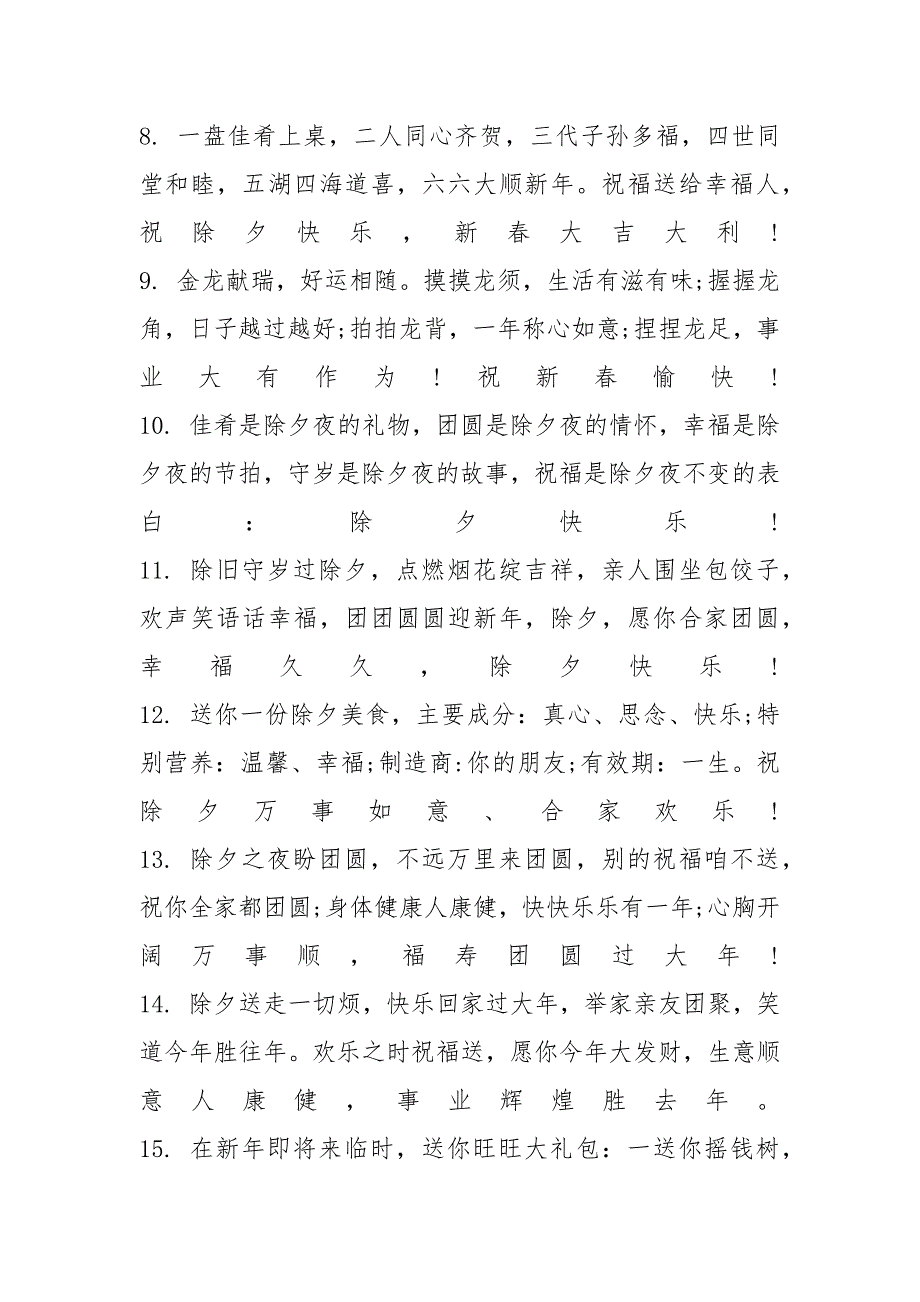 8. 一盘佳肴上桌，二人同心齐贺，三代子孙多福，四世同
堂和睦，五湖四海道喜，六六大顺新年。祝福送给幸福人，
祝除夕快乐，新春大吉大利!
9. 金龙献瑞，好运相随。摸摸龙须，生活有滋有味;握握龙
角，日子越过越好;拍拍龙背，一年称心如意;捏捏龙足，事
业大有作为!祝新春愉快!
10. 佳肴是除夕夜的礼物，团圆是除夕夜的情怀，幸福是除
夕夜的节拍，守岁是除夕夜的故事，祝福是除夕夜不变的表
白：除夕快乐!
11. 除旧守岁过除夕，点燃烟花绽吉祥，亲人围坐包饺子，
欢声笑语话幸福，团团圆圆迎新年，除夕，愿你合家团圆，
幸福久久，除夕快乐!
12. 送你一份除夕美食，主要成分：真心、思念、快乐;特
别营养：温馨、幸福;制造商:你的朋友;有效期：一生。祝
除夕万事如意、合家欢乐!
13. 除夕之夜盼团圆，不远万里来团圆，别的祝福咱不送，
祝你全家都团圆;身体健康人康健，快快乐乐有一年;心胸开
阔万事顺，福寿团圆过大年!
14. 除夕送走一切烦，快乐回家过大年，举家亲友团聚，笑
道今年胜往年。欢乐之时祝福送，愿你今年大发财，生意顺
意人康健，事业辉煌胜去年。
15. 在新年即将来临时，送你旺旺大礼包：一送你摇钱树，